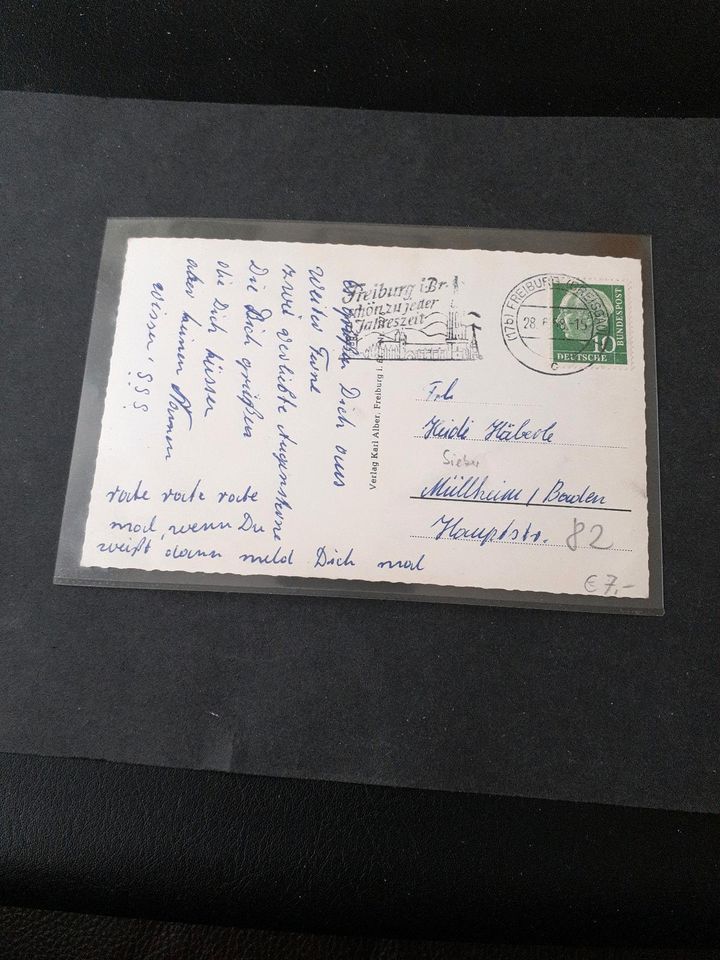 Es grüßen Dich aus
Weiter Ferne
zwei verliebte Augensterne
Die Dich grüßen
die Dich küssen
aber keinen Namen
wissen! ? ? ?
rate rate rate
mal, wenn Du
weißt dann meld Dich mal
Verlag Karl Alber, Freiburg i.
Freiburg i.Br.
schön zu jeder
Jahreszeit
(17b) FREIBURG (BREISGAU)
28. 6. 15
c
10
DEUTSCHE
BUNDESPOST
Frl.
Heidi Häberle
Müllheim / Baden
Hauptstr. 82
€ 7,-